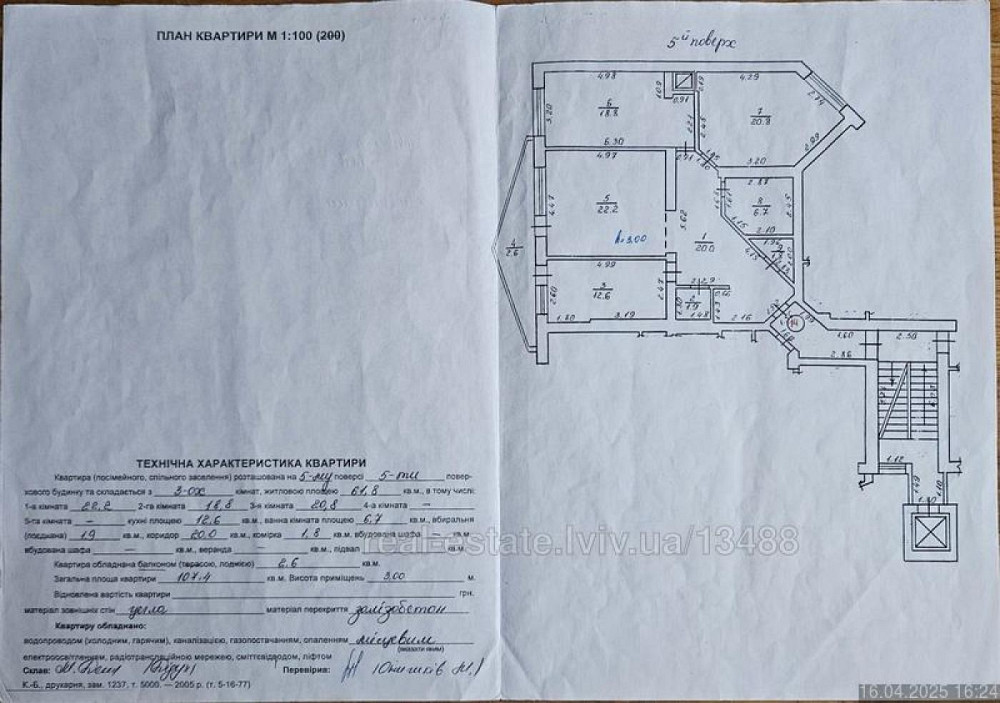 ПЛАН КВАРТИРИ М 1:100 (200)
5й поверх
4.98
1.09
0.91
0.19
4.29
2.74
3.20
6
18.8
2.21
2.45
7
20.8
2.99
6.30
0.41
3.20
4.97
4.47
5
22.2
h=3.00
3.62
1
20.0
8
6.7
2.45
1.15
2.10
4
2.6
4.99
2.60
3
12.6
2.47
1.80
3.19
2
1.9
1.48
2.16
14
1.60
2.50
2.86
1.12
ТЕХНІЧНА ХАРАКТЕРИСТИКА КВАРТИРИ
Квартира (посімейного, спільного заселення) розташована на 5-му поверсі 5-ти поверхового будинку та складається з 3-ох кімнат, житловою площею 61,8 кв.м., в тому числі:
1-а кімната 22,2 2-га кімната 18,8 3-я кімната 20,8 4-а кімната —
5-та кімната — кухні площею 12,6 кв.м., ванна кімната площею 6,7 кв.м., вбиральня
(поєднана) 1,9 кв.м., коридор 20,0 кв.м., комірка 1,8 кв.м. вбудована шафа — кв.м
вбудована шафа — кв.м., веранда — кв.м., підвал кв.м.
Квартира обладнана балконом (терасою, лоджією) 2.6 кв.м.
Загальна площа квартири 107.4 кв.м. Висота приміщень 3,00 м.
Відновлена вартість квартири грн.
матеріал зовнішніх стін цегла матеріал перекриття залізобетон
Квартиру обладнано:
водопроводом (холодним, гарячим), каналізацією, газопостачанням, опаленням місцевим
(вказати яким)
електроосвітленням, радіотрансляційною мережею, сміттєвідводом, ліфтом
Склав: Перевірив:
К.-Б., друкарня, зам. 1237, т. 5000. — 2005 р. (т. 5-16-77)
real-estate.lviv.ua/13488
16.04.2025 16:24